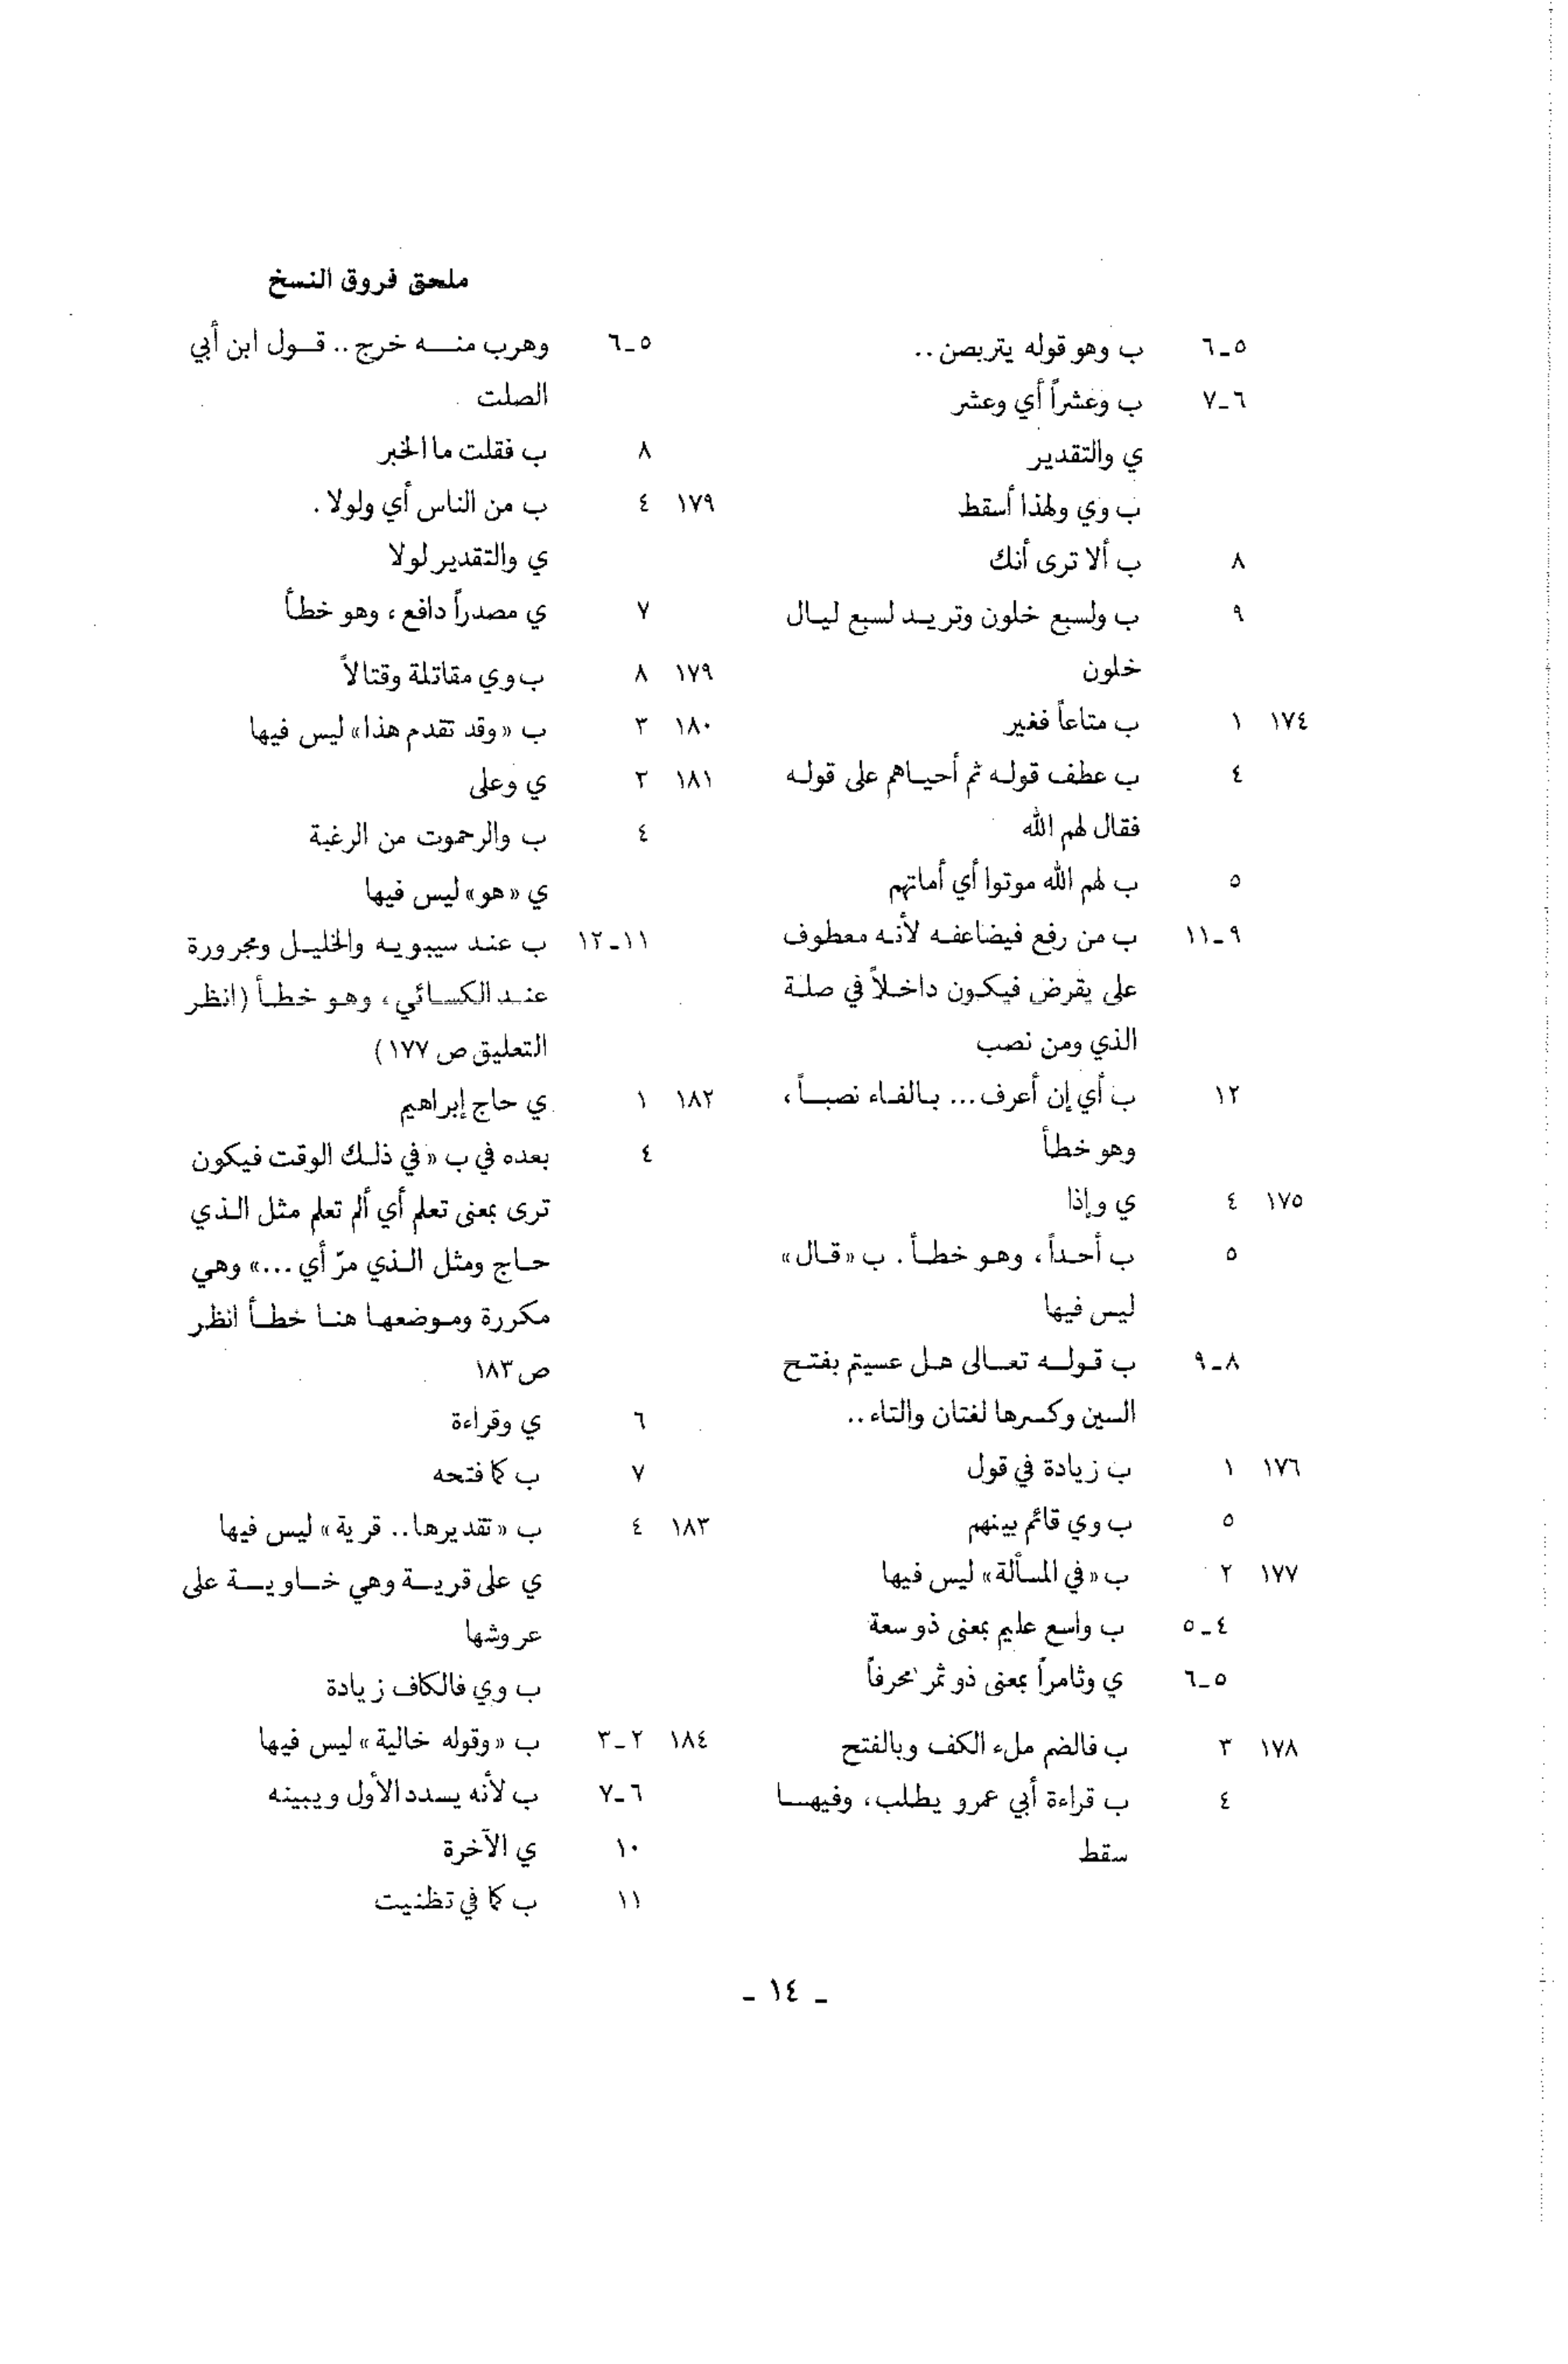 ملحق فروق النسخ
٥ـ٦ ب وهو قوله يتربصن ..
٦ـ٧ ب وعشراً أي وعشر
ي والتقدير
ب وي ولهذا أسقط
٨ ب ألا ترى أنك
٩ ب ولسبع خلون وتريد لسبع ليال
خلون
١٧٤ ١ ب متاعاً فغير
٤ ب عطف قوله ثم أحياهم على قوله
فقال لهم الله
٥ ب لهم الله موتوا أي أماتهم
٩ـ١١ ب من رفع فيضاعفه لأنه معطوف
على يقرض فيكون داخلاً في صلة
الذي ومن نصب
١٢ ب أي إن أعرف ... بالفاء نصباً ،
وهو خطأ
١٧٥ ٤ ي وإذا
٥ ب أحداً ، وهو خطأ . ب « قال »
ليس فيها
٨ـ٩ ب قوله تعالى هل عسيتم بفتح
السين وكسرها لغتان والتاء ..
١٧٦ ١ ب زيادة في قول
٥ ب وي قائم بينهم
١٧٧ ٢ ب « في المسألة » ليس فيها
٤ـ٥ ب واسع عليم بمعنى ذو سعة
٥ـ٦ ي وثامراً بمعنى ذو ثمر محرفاً
١٧٨ ٣ ب فالضم ملء الكف وبالفتح
٤ ب قراءة أبي عمرو يطلب ، وفيها
سقط
٥ـ٦ وهرب منه خرج .. قول ابن أبي
الصلت
٨ ب فقلت ما الخبر
١٧٩ ٤ ب من الناس أي ولولا .
ي والتقدير لولا
٧ ي مصدراً دافع ، وهو خطأ
١٧٩ ٨ ب وي مقاتلة وقتالاً
١٨٠ ٣ ب « وقد تقدم هذا » ليس فيها
١٨١ ٢ ي وعلى
٤ ب والرحموت من الرغبة
ي « هو » ليس فيها
١١ـ١٢ ب عند سيبويه والخليل ومجرورة
عند الكسائي ، وهو خطأ (انظر
التعليق ص ١٧٧ )
١٨٢ ١ ي حاج إبراهيم
٤ بعده في ب « في ذلك الوقت فيكون
ترى بمعنى تعلم أي ألم تعلم مثل الذي
حاج ومثل الذي مرّ أي ... » وهي
مكررة وموضعها هنا خطأ انظر
ص ١٨٣
٦ ي وقراءة
٧ ب كما فتحه
١٨٣ ٤ ب « تقديرها .. قرية » ليس فيها
ي على قرية وهي خاوية على
عروشها
ب وي فالكاف زيادة
١٨٤ ٢ـ٣ ب « وقوله خالية » ليس فيها
٦ـ٧ ب لأنه يسدد الأول ويبينه
١٠ ي الآخرة
١١ ب كما في تظنيت
ـ ١٤ ـ